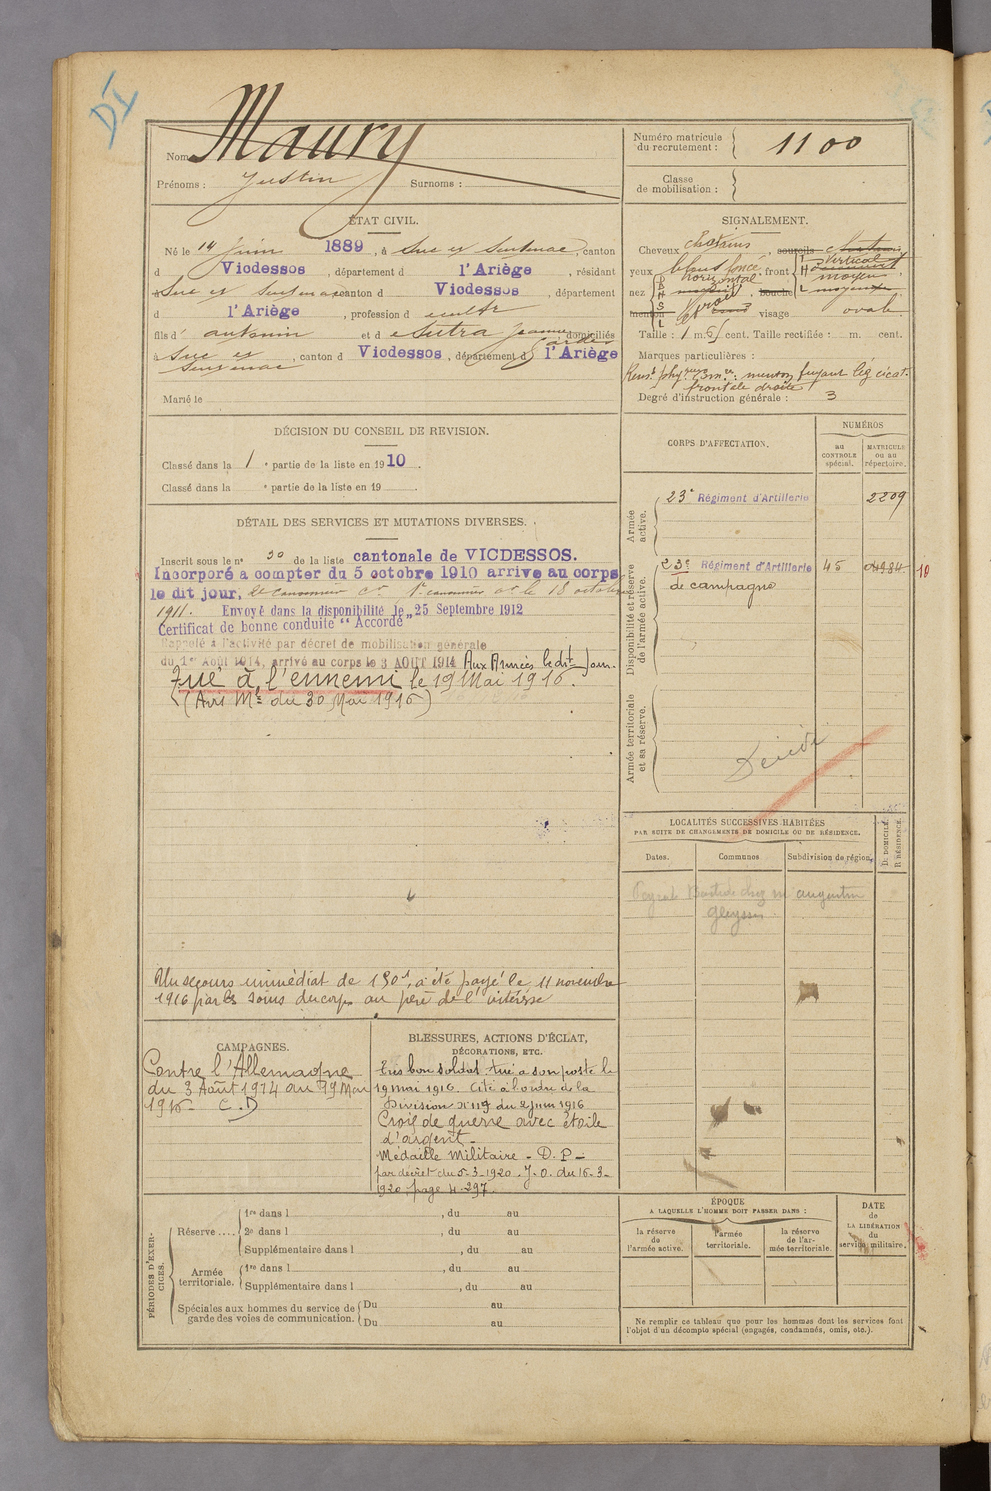 DI
Nom Maury
Prénoms : Justin Surnoms :
Numéro matricule du recrutement : 1100
Classe de mobilisation :
ÉTAT CIVIL.
Né le 14 juin 1889, à Suc et Sentenac, canton
d Vicdessos, département d l'Ariège, résidant
à Suc et Sentenac canton d Vicdessos, département
d l'Ariège, profession d cultr
fils d' antonin et d Sutra Jeanne domiciliés
à Suc et Sentenac, canton d Vicdessos, département d l'Ariège
Marié le
SIGNALEMENT.
Cheveux chatains sourcils
yeux bleus foncé, front vertical moyen
nez horizontal bouche moyenne
menton visage ovale
Taille : 1 m. 65 cent. Taille rectifiée : m. cent.
Marques particulières :
menton fuyant lég cicat.
frontale droite
Degré d'instruction générale : 3
DÉCISION DU CONSEIL DE REVISION.
Classé dans la 1 e partie de la liste en 1910.
Classé dans la e partie de la liste en 19 .
DÉTAIL DES SERVICES ET MUTATIONS DIVERSES.
Inscrit sous le n° 30 de la liste cantonale de VICDESSOS.
Incorporé a compter du 5 octobre 1910 arrive au corps
le dit jour, 2e canonnier 1r canonnier le 18 octobre
1911. Envoyé dans la disponibilité le 25 Septembre 1912
Certificat de bonne conduite "Accordé"
Rappelé à l'activité par décret de mobilisation générale
du 1er Août 1914, arrivé au corps le 3 AOUT 1914 Aux Armées le dit Jour.
Tué à l'ennemi le 19 Mai 1916.
(Avis Mel du 30 Mai 1916)
Un secours immédiat de 150f, a été payé le 11 novembre
1916 par les soins du corps au père de l'intéressé
CORPS D'AFFECTATION.
NUMÉROS
au CONTROLE spécial.
MATRICULE ou au répertoire.
Armée active.
23e Régiment d'Artillerie 2209
Disponibilité et réserve de l'armée active.
23e Régiment d'Artillerie 45 04984 19
de campagne
Armée territoriale et sa réserve.
Décédé
LOCALITÉS SUCCESSIVES HABITÉES
PAR SUITE DE CHANGEMENTS DE DOMICILE OU DE RÉSIDENCE.
Dates. Communes Subdivision de région.
D. DOMICILE. R RÉSIDENCE.
CAMPAGNES.
Contre l'Allemagne
du 3 Août 1914 au 19 Mai
1916 C.D
BLESSURES, ACTIONS D'ÉCLAT,
DÉCORATIONS, ETC.
Très bon soldat tué a son poste le
19 mai 1916. Cité à l'ordre de la
Division N° 119 du 2 juin 1916
Croix de guerre avec étoile
d'argent_
Médaille Militaire _ D.P_
par décret du 5-3-1920. J.O. du 16-3-
1920 page 4.297.
PÉRIODES D'EXERCICES.
Réserve .... 1re dans l , du au
2e dans l , du au
Supplémentaire dans l , du au
Armée territoriale. 1re dans l , du au
Supplémentaire dans l , du au
Spéciales aux hommes du service de garde des voies de communication. Du au
Du au
ÉPOQUE
A LAQUELLE L'HOMME DOIT PASSER DANS :
la réserve de l'armée active.
l'armée territoriale.
la réserve de l'armée territoriale.
DATE de LA LIBÉRATION du service militaire.
Ne remplir ce tableau que pour les hommes dont les services font
l'objet d'un décompte spécial (engagés, condamnés, omis, etc.).